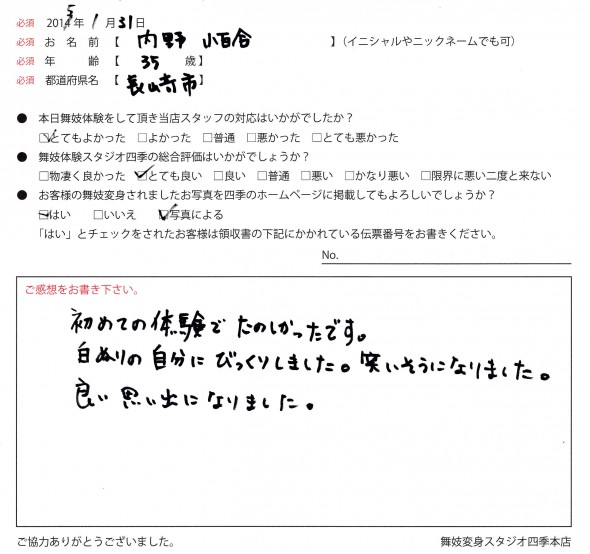 必須 2015年 1月31日
必須 お名前【 内野 小百合 】(イニシャルやニックネームでも可)
必須 年 齢【 35 歳】
必須 都道府県名【長崎市】
● 本日舞妓体験をして頂き当店スタッフの対応はいかがでしたか?
☑とてもよかった □よかった □普通 □悪かった □とても悪かった
● 舞妓体験スタジオ四季の総合評価はいかがでしょうか?
□物凄く良かった ☑とても良い □良い □普通 □悪い □かなり悪い □限界に悪い二度と来ない
● お客様の舞妓変身されましたお写真を四季のホームページに掲載してもよろしいでしょうか?
□はい □いいえ ☑写真による
「はい」とチェックをされたお客様は領収書の下記にかかれている伝票番号をお書きください。
No.
ご感想をお書き下さい。
初めての体験で たのしかったです。
白ぬりの自分に びっくりしました。笑いそうになりました。
良い 思い出になりました。
ご協力ありがとうございました。 舞妓変身スタジオ四季本店